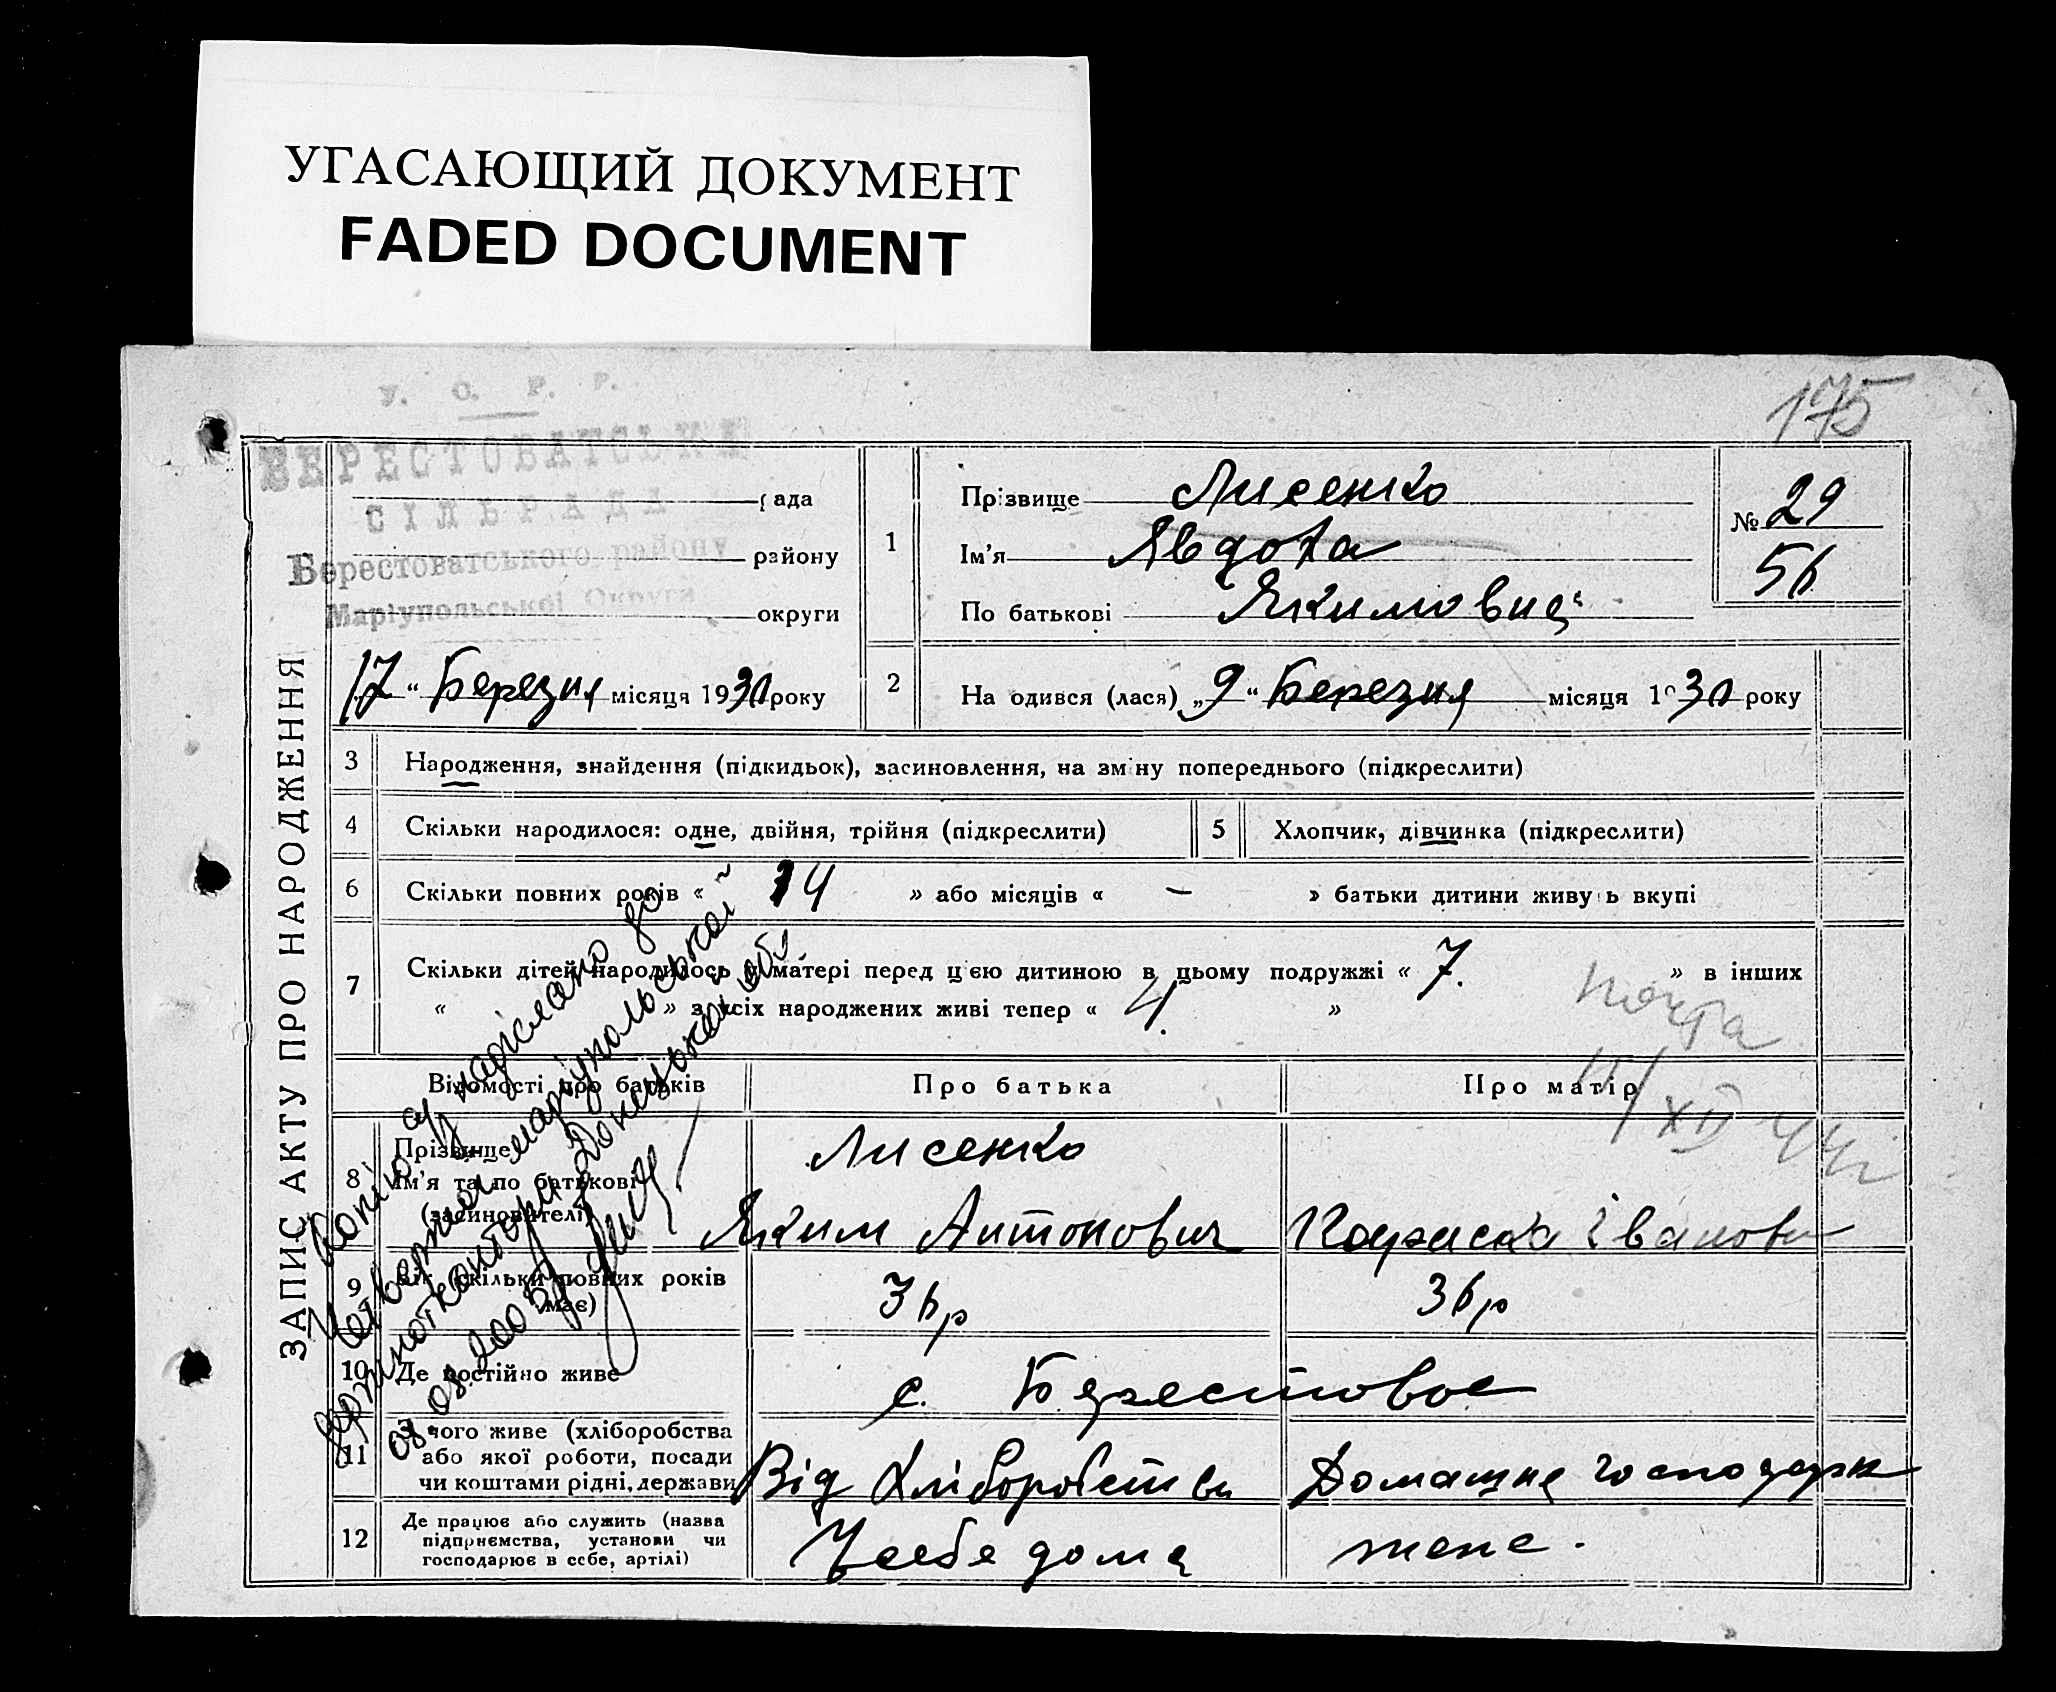 УГАСАЮЩИЙ ДОКУМЕНТ
FADED DOCUMENT
175
У. С. Р. Р.
БЕРЕСТОВАТСЬКА
СІЛЬРАДА
Берестоватського району
Маріупольської Округи
рада
району
округи
17 " Березня місяця 1930 року
ЗАПИС АКТУ ПРО НАРОДЖЕННЯ
1
Прізвище Лисенко
Ім'я Явдоха
По батькові Якимовна
№ 29
56
2 На одився (лася) „ 9 " Березня місяця 1930 року
3 Народження, знайдення (підкидьок), засиновлення, на зміну попереднього (підкреслити)
4 Скільки народилося: одне, двійня, трійня (підкреслити) 5 Хлопчик, дівчинка (підкреслити)
6 Скільки повних років « 14 » або місяців « — » батьки дитини живуть вкупі
7 Скільки дітей народилось у матері перед цією дитиною в цьому подружжі « 7. » в інших
« » з усіх народжених живі тепер « 4. »
почта
XII 44г
Відомості про батьків Про батька Про матір
8 Прізвище Ім'я та по батькові (засиновителі)
Лисенко
Яким Антонович
Іванов
9 Вік (скільки повних років має) 36 р 36 р
10 Де постійно живе с. Берестовое
11 З чого живе (хліборобства або якої роботи, посади чи коштами рідні, держави
Від Хліборобства
Домашнє господарк
12 Де працює або служить (назва підприємства, установи чи господарює в себе, артілі)
У себе дома
теж.
Копію а/з надіслано до
Четвертої маріупольської
держнотконтори Донецької обл.
08.08.2003р.